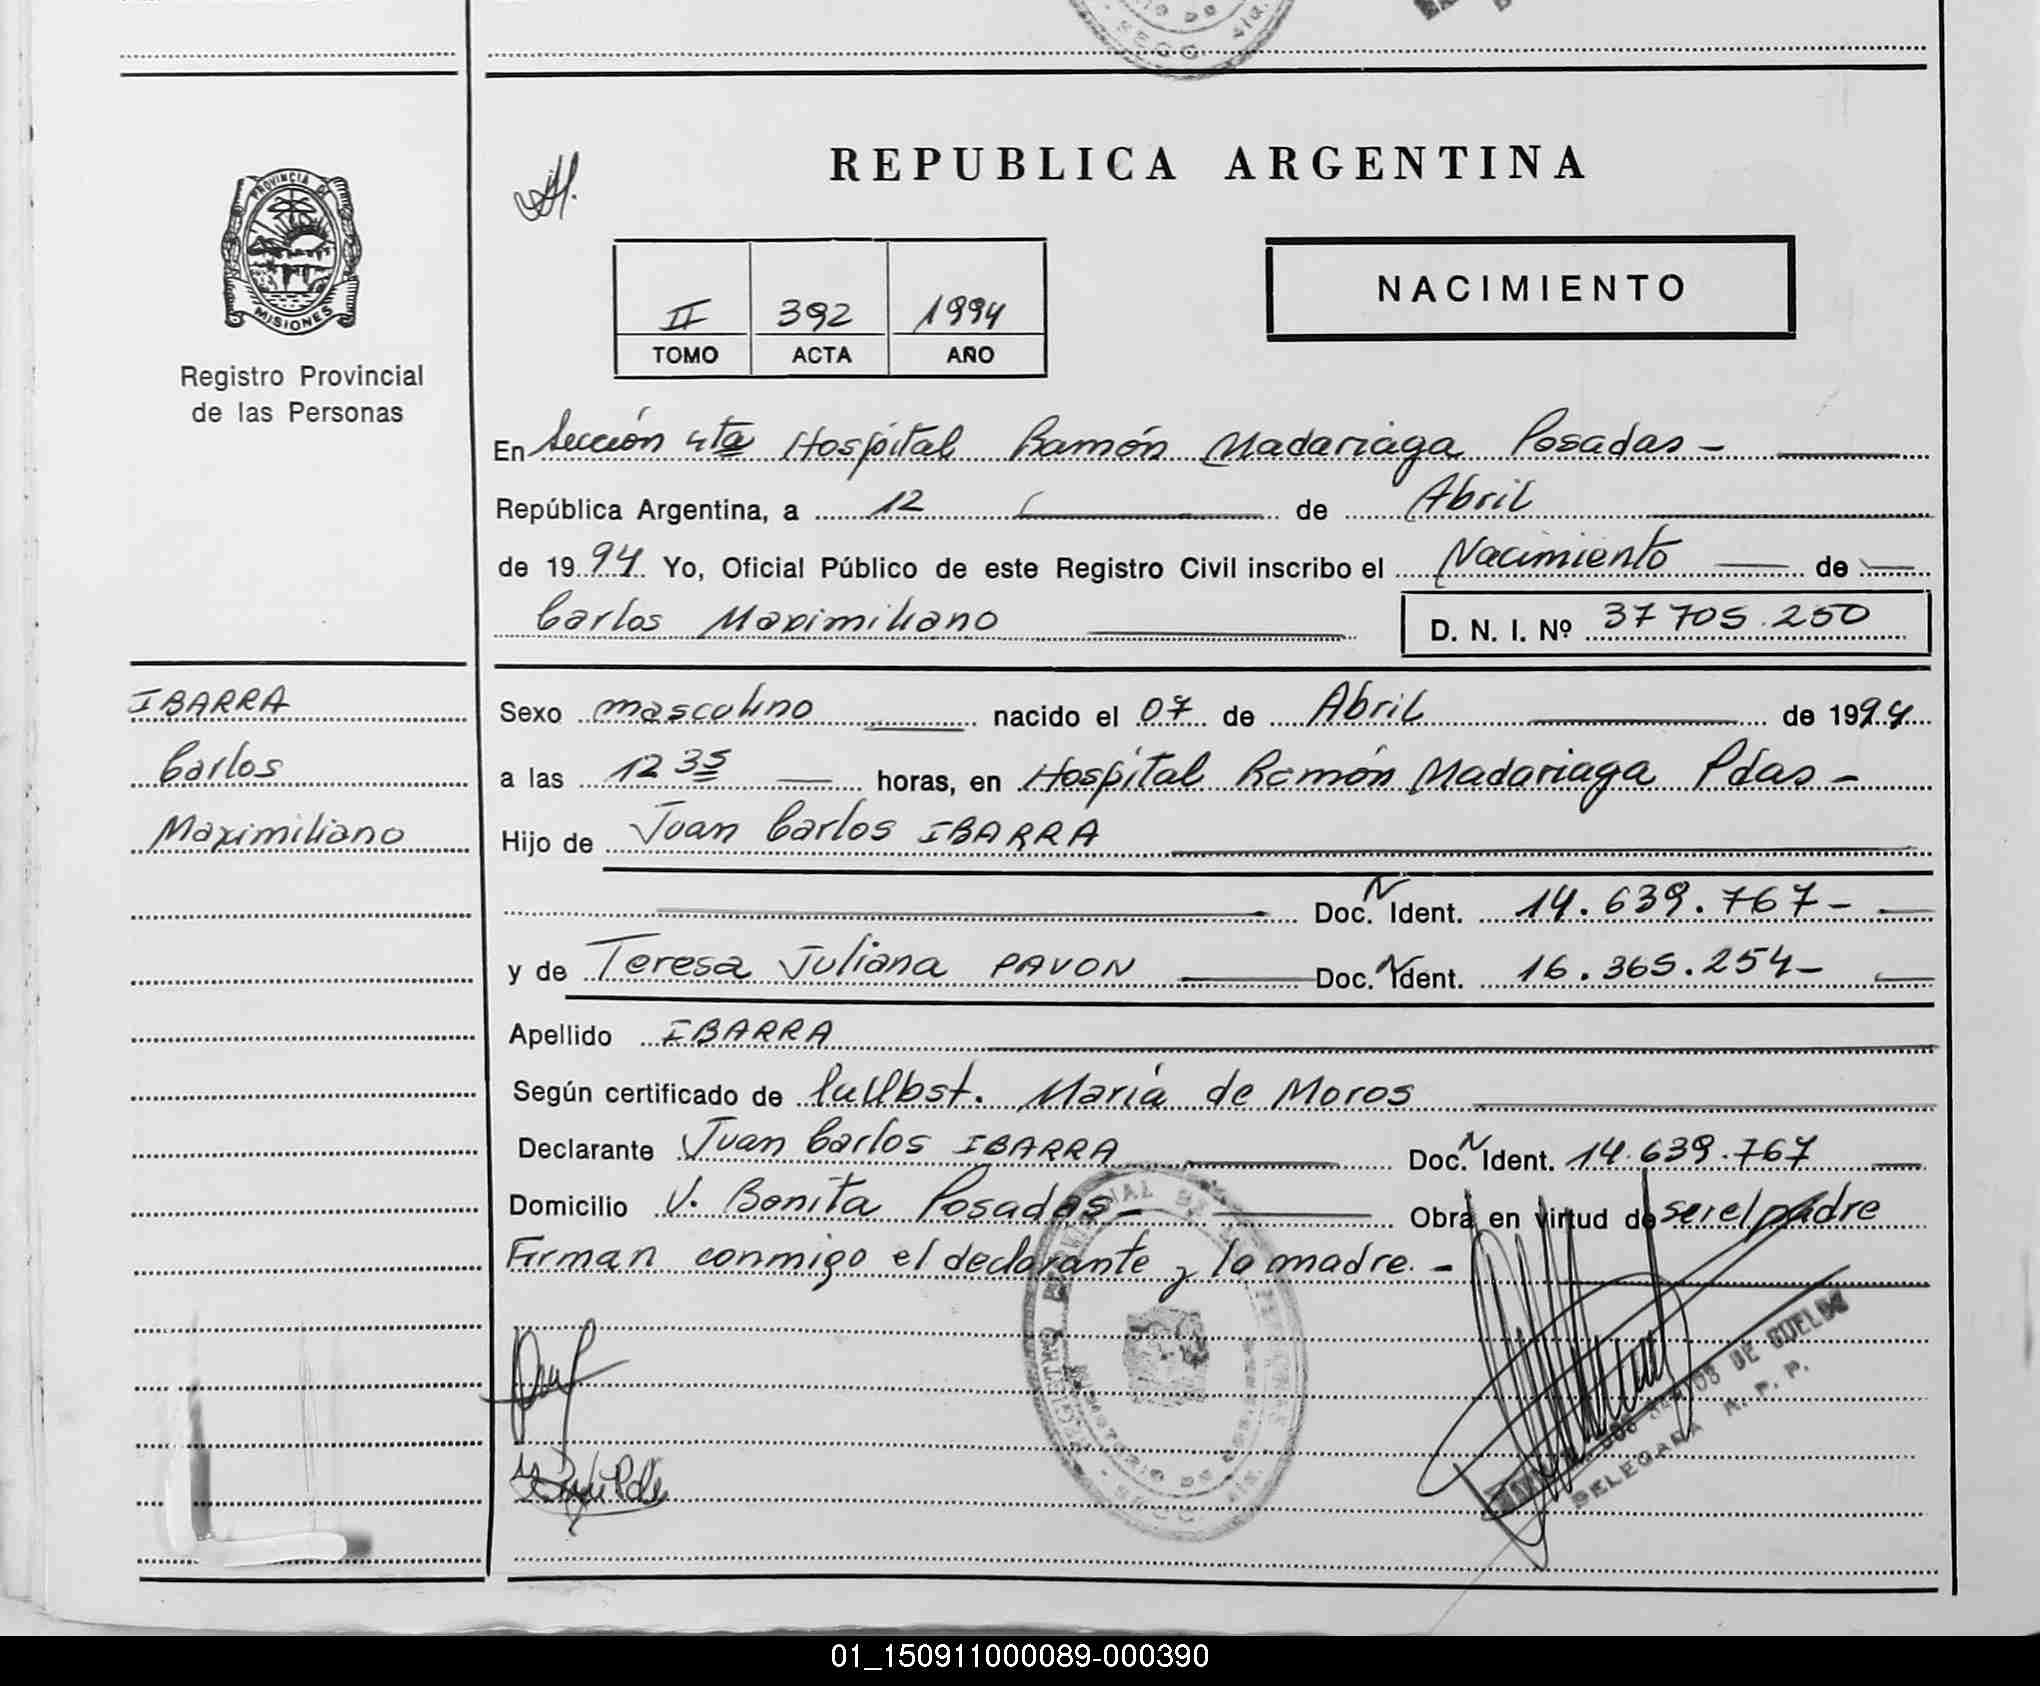 REPUBLICA ARGENTINA
PROVINCIA DE
MISIONES
Registro Provincial
de las Personas
II 392 1994
TOMO ACTA AÑO
NACIMIENTO
En Sección 4ta Hospital Ramón Madariaga Posadas -
República Argentina, a 12 de Abril
de 1994 Yo, Oficial Público de este Registro Civil inscribo el Nacimiento de
Carlos Maximiliano D. N. I. Nº 37705.250
IBARRA
Carlos
Maximiliano
Sexo masculino nacido el 07 de Abril de 1994
a las 12 35 horas, en Hospital Ramón Madariaga Pdas -
Hijo de Juan Carlos IBARRA
Doc. N Ident. 14.639.767 -
y de Teresa Juliana PAVON Doc. N Ident. 16.365.254 -
Apellido IBARRA
Según certificado de María de Moros
Declarante Juan Carlos IBARRA Doc. N Ident. 14.639.767
Domicilio V. Bonita Posadas - Obra en virtud de ser el padre
Firman conmigo el declarante y la madre. -
DE GUELDE
DELEGADA R. P. P.
01_150911000089-000390